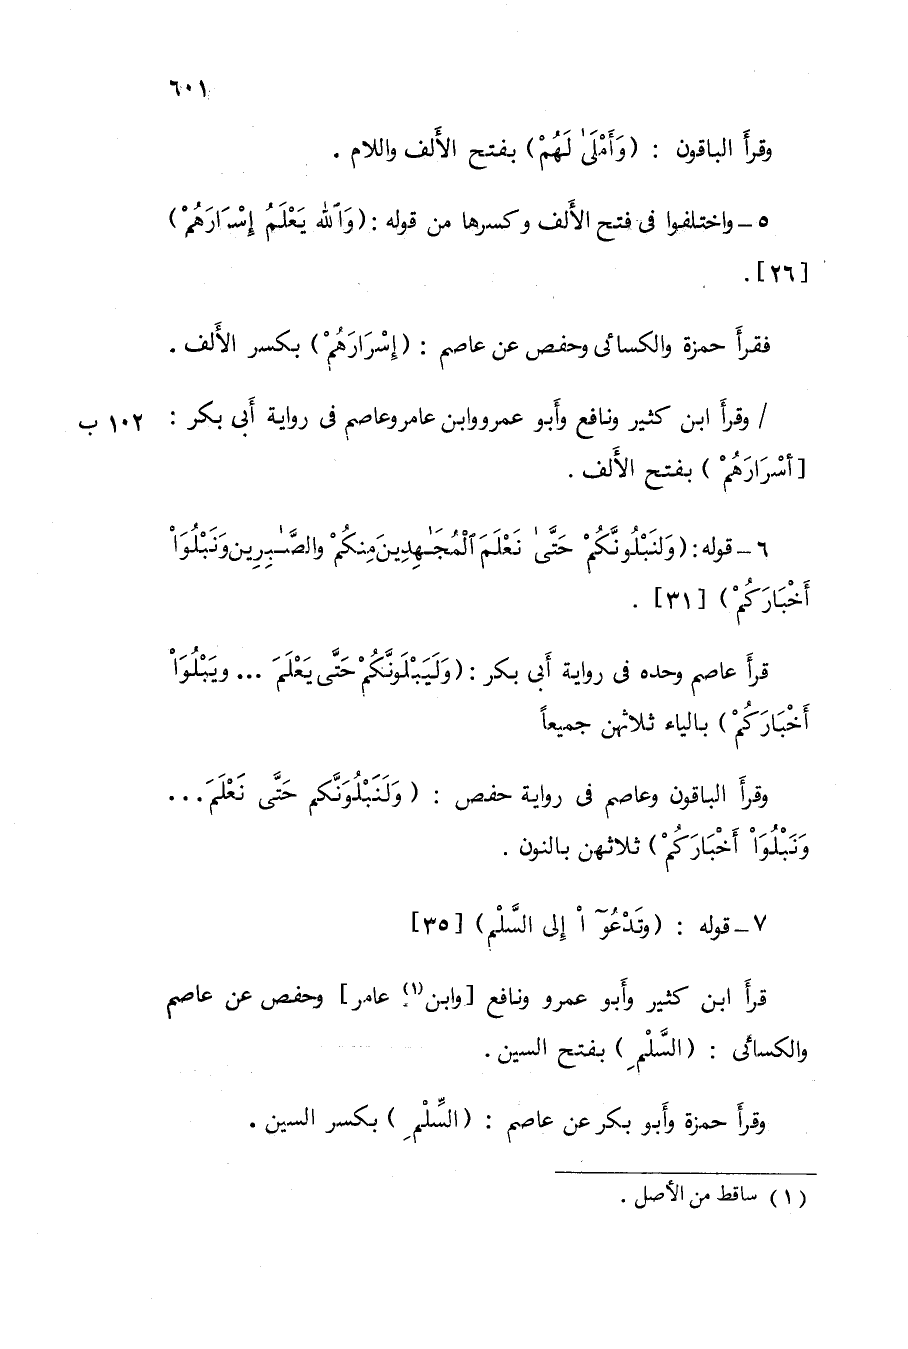 ٦٠١
وقرأَ الباقون : (وَأَمْلَىٰ لَهُمْ) بفتح الأَلف واللام .
٥ – واختلفوا فى فتح الأَلف وكسرها من قوله : (وَٱلله يَعْلَمُ إِسْرَارَهُمْ)
[٢٦].
فقرأَ حمزة والكسائى وحفص عن عاصم : (إِسْرَارَهُمْ) بكسر الأَلف .
/ وقرأَ ابن كثير ونافع وأَبو عمرو وابن عامر وعاصم فى رواية أَبى بكر : ١٠٢ ب
[أَسْرَارَهُمْ ) بفتح الأَلف .
٦ – قوله : (وَلَنَبْلُونَّكُمْ حَتَّىٰ نَعْلَمَ ٱلْمُجَـٰهِدِينَ مِنكُمْ والصَّـٰبِرِين وَنَبْلُوَاْ
أَخْبَارَكُمْ) [٣١] .
قرأَ عاصم وحده فى رواية أَبى بكر : (وَلَيَبْلَونَّكُمْ حَتَّى يَعْلَمَ ... ويَبْلُوَاْ
أَخْبَارَكُمْ) بالياء ثلاثهن جميعاً
وقرأَ الباقون وعاصم فى رواية حفص : ( وَلَنَبْلُوَنَّكم حَتَّى نَعْلَمَ ...
وَنَبْلُوَاْ أَخْبَارَكُمْ) ثلاثهن بالنون .
٧ – قوله : (وتَدْعُوٓ اْ إِلى السَّلْم) [٣٥]
قرأَ ابن كثير وأَبو عمرو ونافع [وابن(١) عامر] وحفص عن عاصم
والكسائى : (السَّلْمِ ) بفتح السين .
وقرأَ حمزة وأَبو بكر عن عاصم : (السِّلْمِ ) بكسر السين .
(١) ساقط من الأصل .